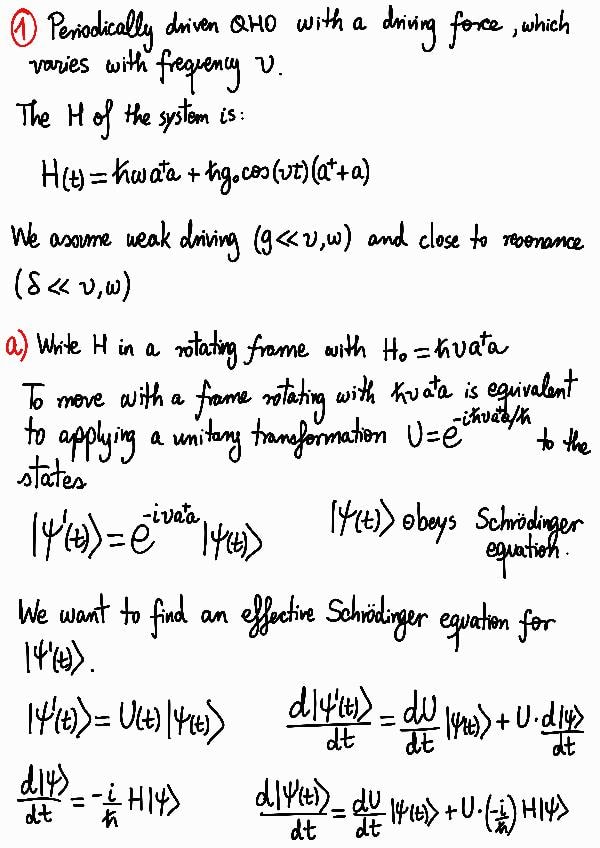 ① Periodically driven QHO with a driving force, which
varies with frequency ν.
The H of the system is:
H(t) = ħωa⁺a + ħg₀cos(νt)(a⁺+a)
We assume weak driving (g≪ν,ω) and close to resonance
(δ ≪ ν,ω)
a) Write H in a rotating frame with H₀ = ħνa⁺a
To move with a frame rotating with ħνa⁺a is equivalent
to applying a unitary transformation U = e^{-iħνa⁺a/ħ} to the
states
|ψ'(t)⟩ = e^{-iνa⁺a} |ψ(t)⟩ |ψ(t)⟩ obeys Schrödinger
equation.
We want to find an effective Schrödinger equation for
|ψ'(t)⟩.
|ψ'(t)⟩ = U(t)|ψ(t)⟩ d|ψ'(t)⟩/dt = dU/dt |ψ(t)⟩ + U·d|ψ⟩/dt
d|ψ⟩/dt = -i/ħ H|ψ⟩ d|ψ'(t)⟩/dt = dU/dt |ψ(t)⟩ + U·(-i/ħ) H|ψ⟩